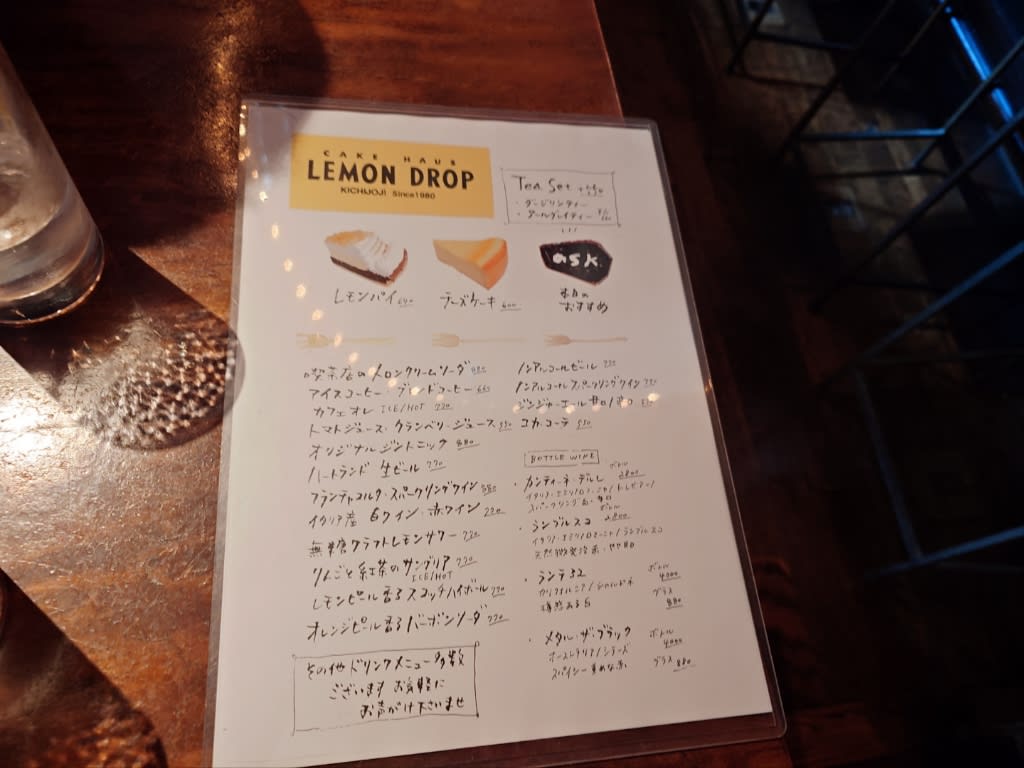 CAKE HAUS
LEMON DROP
KICHIJOJI Since1980
Tea Set
・ダージリンティー
・アールグレイティー
レモンパイ
チーズケーキ 600
ask.
本日の
おすすめ
喫茶店のメロンクリームソーダ 880
アイスコーヒー・ブレンドコーヒー 660
カフェオレ ICE/HOT 770
トマトジュース・クランベリージュース 550
オリジナルジントニック 880
ハートランド 生ビール 770
フランチャコルタ・スパークリングワイン 880
イタリア産 白ワイン・赤ワイン 770
無糖クラフトレモンサワー 770
りんごと紅茶のサングリア 770
ICE/HOT
レモンピール香るスコッチハイボール 770
オレンジピール香るバーボンソーダ 770
その他ドリンクメニュー多数
ございます お気軽に
お声がけ下さいませ
ノンアルコールビール 770
ノンアルコールスパークリングワイン 770
ジンジャーエール 甘口/辛口 550
コカ・コーラ 550
BOTTLE WINE
・カンティーネ・デルレ ボトル 2800
スパークリング白・辛口
・ランブルスコ ボトル 2800
イタリア・エミリアロマーニャ/ランブルスコ
天然微発泡赤・やや甘口
・ランチ32 ボトル 4000
カリフォルニア/シャルドネ グラス 880
樽感ある白
・メタル・ザ・ブラック ボトル 4000
オーストラリア/シラーズ
スパイシー重めな赤 グラス 880